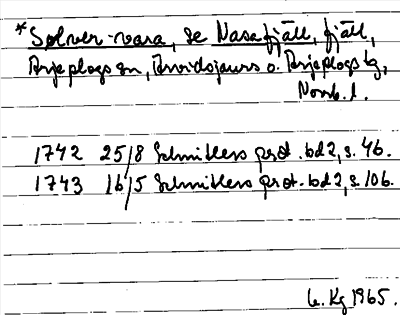 *Solver-vara, se Nasafjäll, fjäll,
Arjeplogs sn, Arvidsjaurs o. Arjeplogs tg,
Norrb. l.
1742 25/8 Schnitlers prot. bd 2, s. 4b.
1743 16/5 Schnitlers prot. bd 2, s. 10b.
Kg 1965.